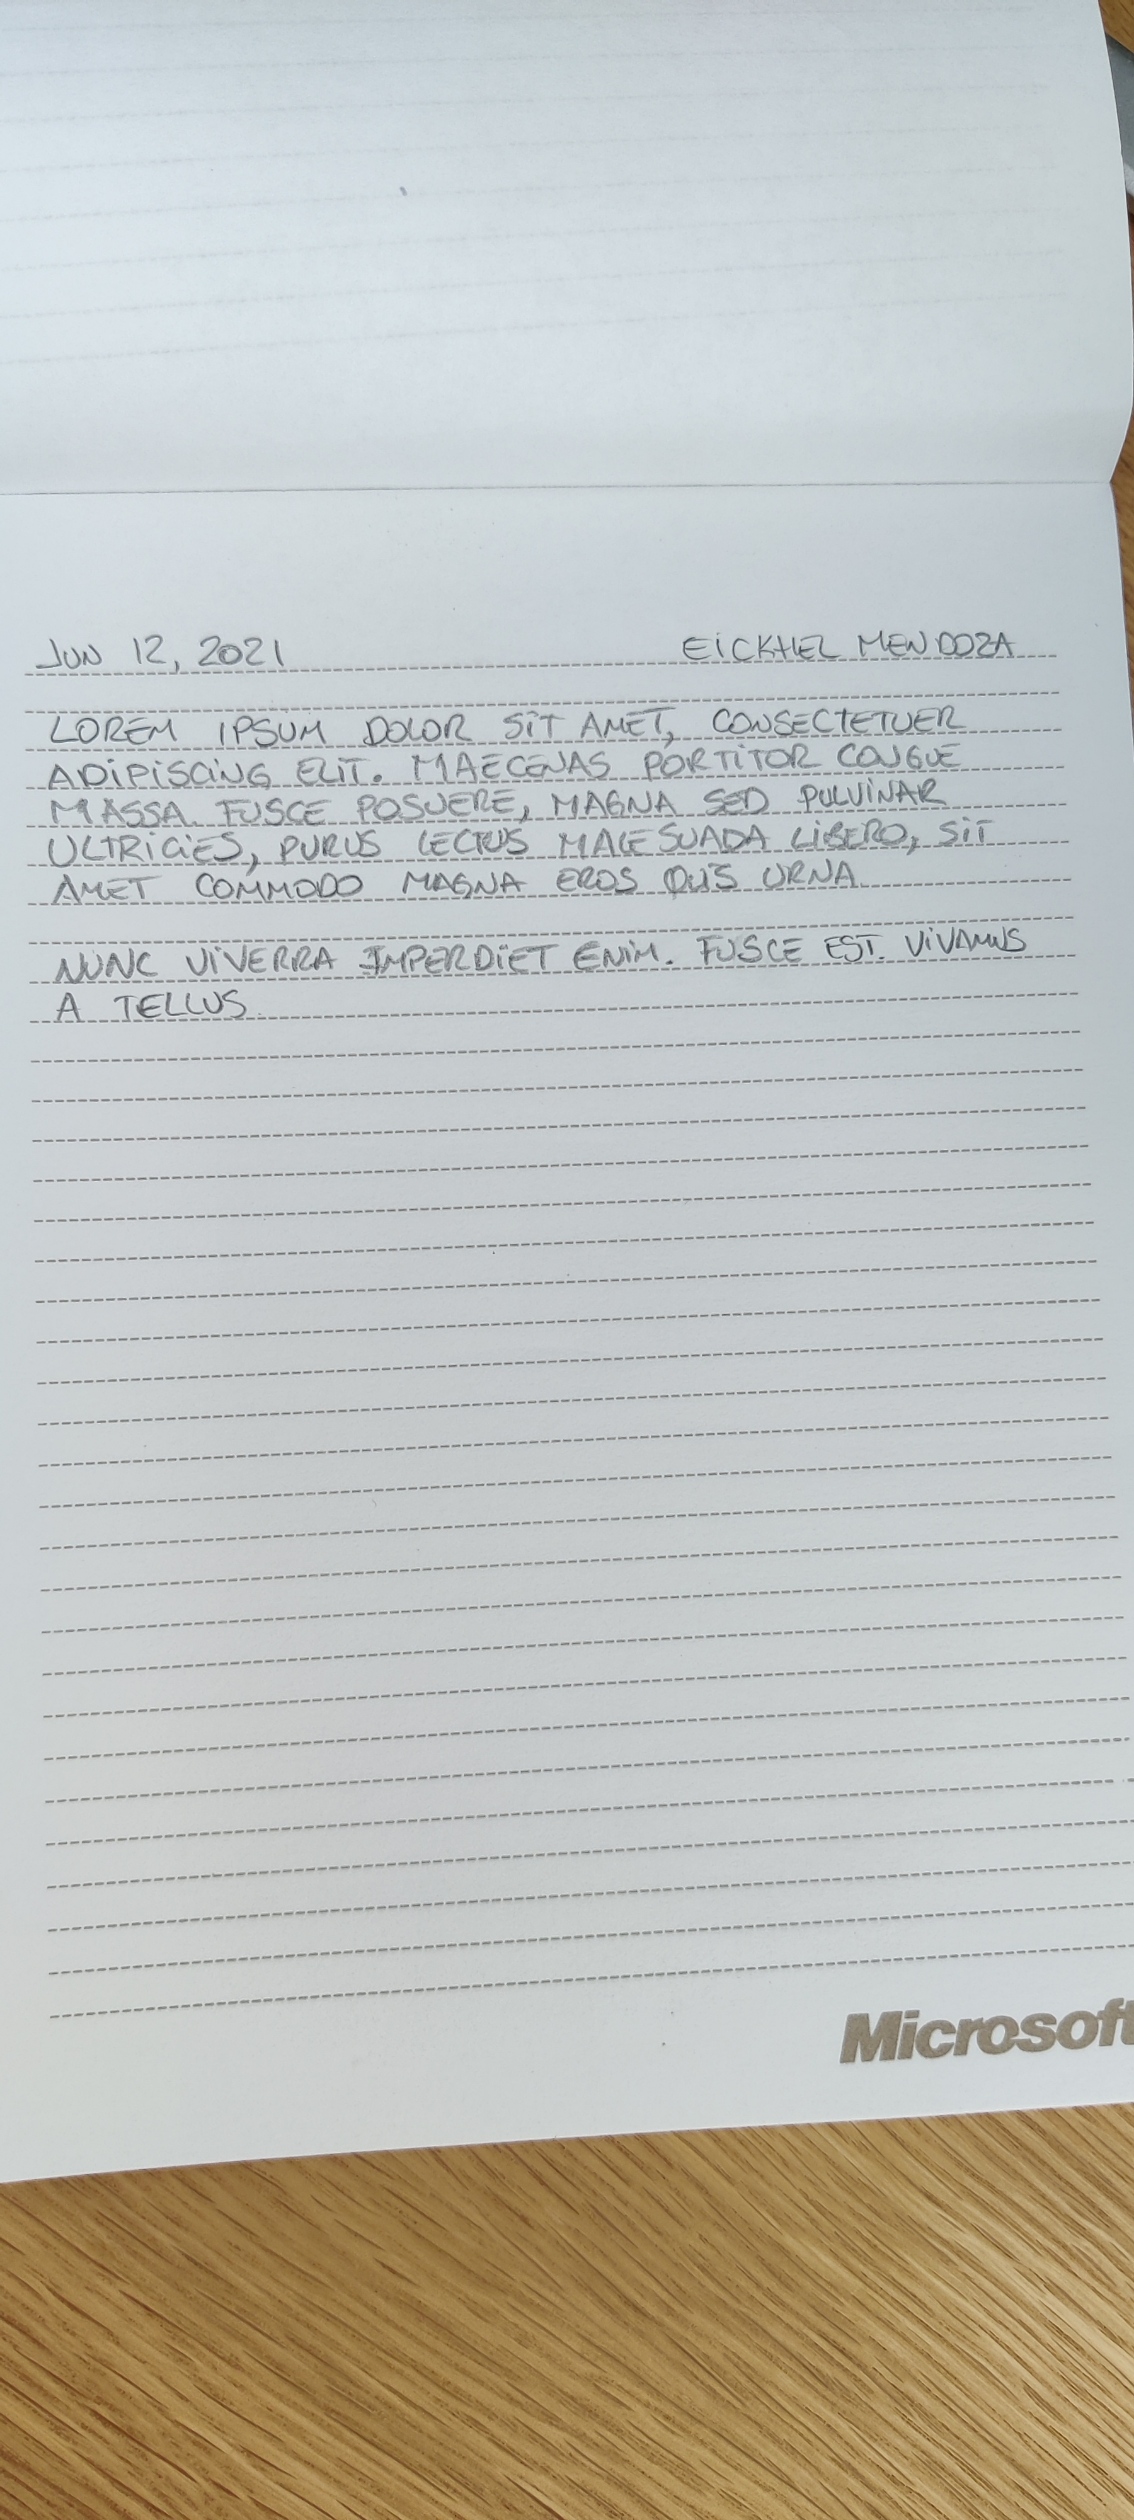 JUN 12, 2021 EICKHEL MENDOZA
LOREM IPSUM DOLOR SIT AMET, CONSECTETUER
ADIPISCING ELIT. MAECENAS PORTITOR CONGUE
MASSA. FUSCE POSUERE, MAGNA SED PULVINAR
ULTRICIES, PURUS LECTUS MALESUADA LIBERO, SIT
AMET COMMODO MAGNA EROS QUIS URNA
NUNC VIVERRA IMPERDIET ENIM. FUSCE EST. VIVAMUS
A TELLUS
Microsoft